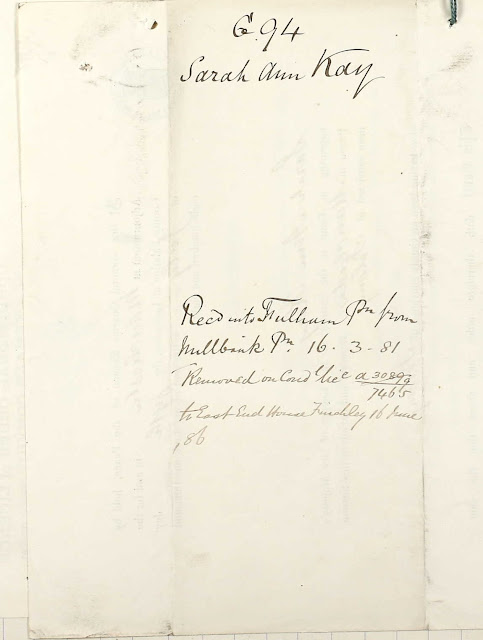 G.94
Sarah Ann Kay
Recd into Fulham Pn from
Millbank Pn. 16. 3 - 81
Removed on Condl lice a 30893
7465
to East End House Finchley 16 June
, 86